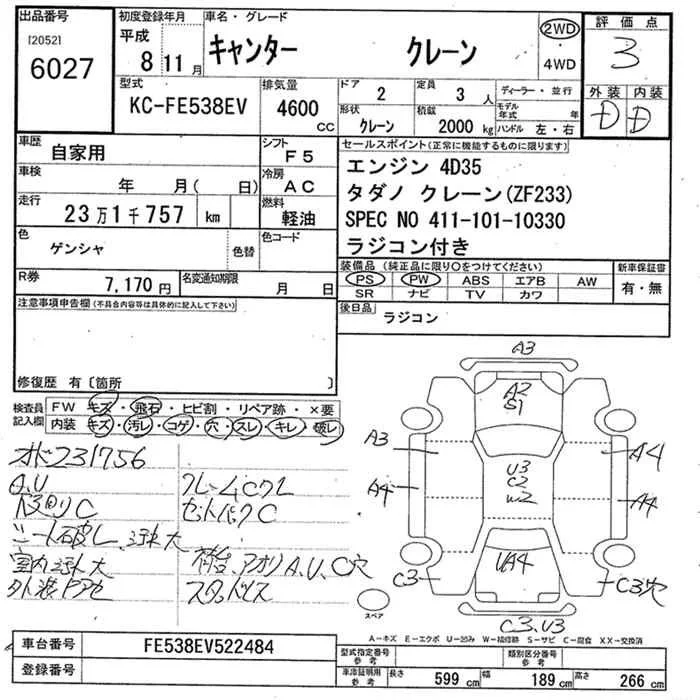 出品番号 初度登録年月 車名・グレード 2WD 評価点
[2052] 平成 キャンター クレーン ・ 3
6027 8 11 月 4WD 外装 内装
型式 排気量 ドア 2 定員 3 人 ディーラー・並行 D D
KC-FE538EV 4600 cc 形状 クレーン 積載 2000 kg モデル年式 年
ハンドル 左・右
車歴 自家用 シフト F5 セールスポイント(正常に機能するものに限ります)
車検 年 月( 日) 冷房 AC エンジン 4D35
走行 23万1千757 km 燃料 軽油 タダノ クレーン(ZF233)
SPEC NO 411-101-10330
色 ゲンシャ 色替 色コード ラジコン付き
R券 7,170円 名変通知期限 月 日 装備品(純正品に限り○をつけてください) 新車保証書
PS PW ABS エアB AW 有・無
SR ナビ TV カワ
注意事項申告欄(不具合内容等は具体的に記入して下さい) 後日品 ラジコン
修復歴 有〔箇所 〕
検査員 FW キズ・飛石・ヒビ割・リペア跡・×要
記入欄 内装 キズ・汚レ・コゲ・穴・スレ・キレ・破レ
231756
A.U
C
セットバックC
シート破レ
室内
A,U,C穴
A3
A2
S1
A3 A4
U3
C2
W2
A4 A4
UA4
C3 C3穴
スペア
C3,U3
A−キズ E−エクボ U−凹み W−補修跡 S−サビ C−腐食 XX−交換済
車台番号 FE538EV522484 型式指定番号 参考 類別区分番号 参考
登録番号 車庫証明用 参考 長さ 599 cm 幅 189 cm 高さ 266 cm